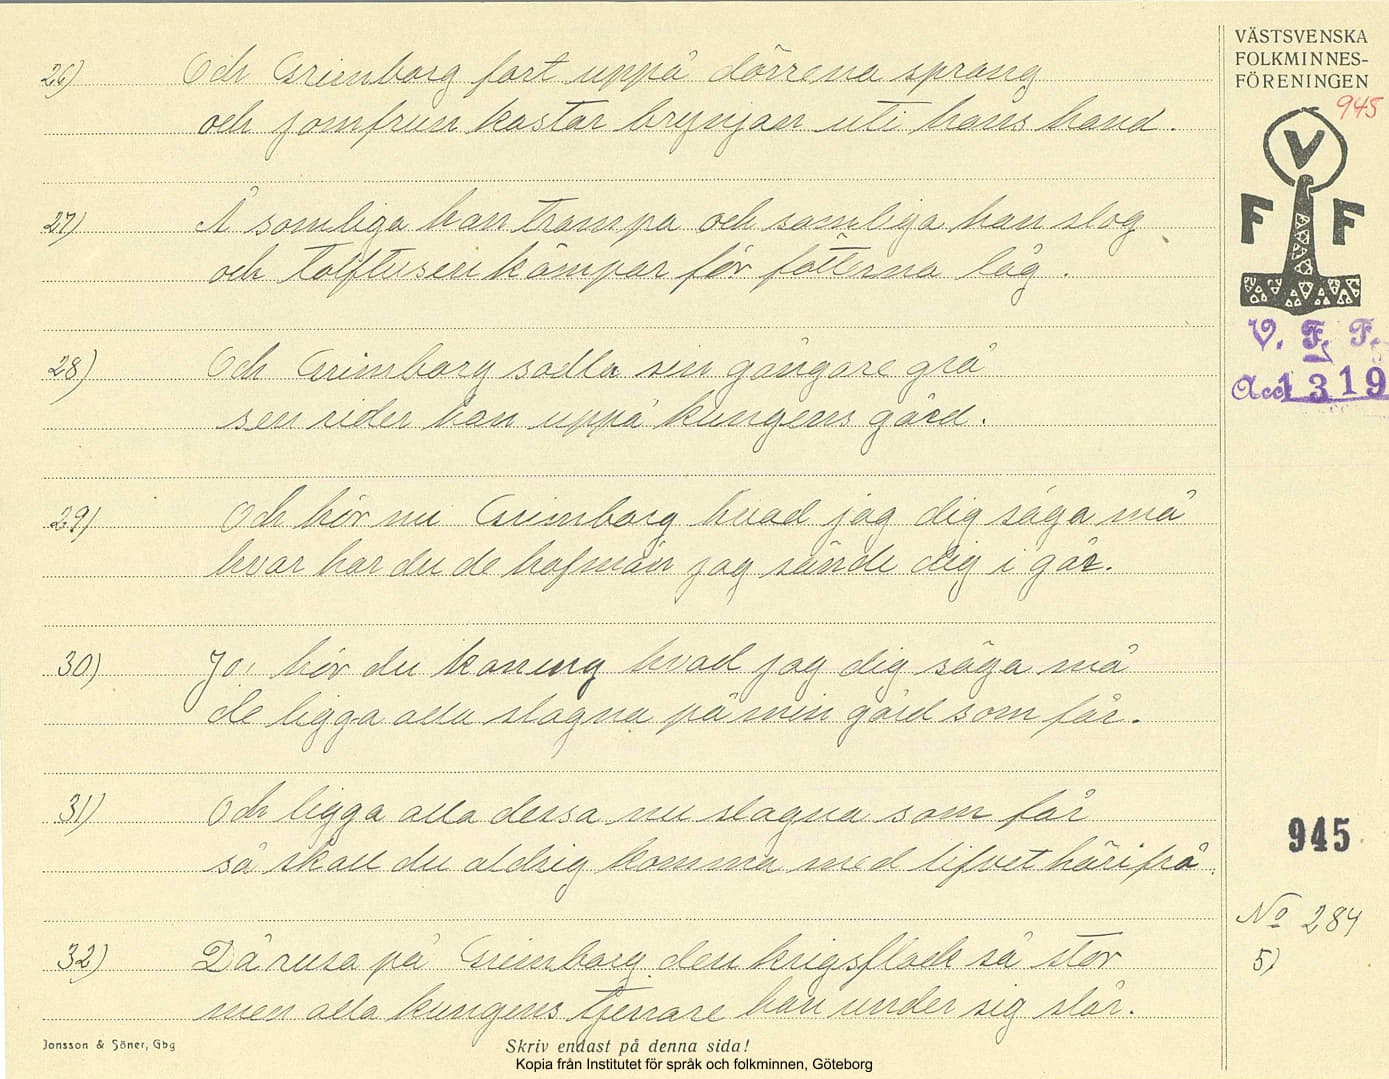 26) Och Grimborg fort uppå dörrena sprang
och jomfrun kastar brynjan uti hans hand.
27) Å somliga han trampa och somliga han slog
och tolftusen kämpar för fötterna låg.
28) Och Grimborg sadla sin gångare grå
sen rider han uppå kungens gård.
29) Och hör nu Grimborg hvad jag dig säga må
hvar har du de hofmän jag sände dig i går.
30) Jo, hör du konung hvad jag dig säga må
de ligga alla slagna på min gård som får.
31) Och ligga alla dessa nu slagna som får
så skall du aldrig komma med lifvet härifrå.
32) Då rusa på Grimborg den krigsflock så stor
men alla kungens tjenare han under sig slår.
Jonsson & Söner, Gbg
Skriv endast på denna sida!
Kopia från Institutet för språk och folkminnen, Göteborg
VÄSTSVENSKA
FOLKMINNES-
FÖRENINGEN
945
V
F F
V. F. F.
Acc 1319
945
No 284
5)